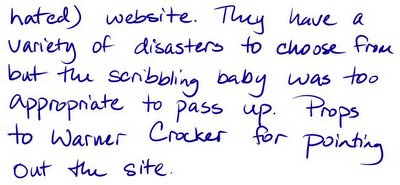 hated) website. They have a
variety of disasters to choose from
but the scribbling baby was too
appropriate to pass up. Props
to Warner Crocker for pointing
out the site.